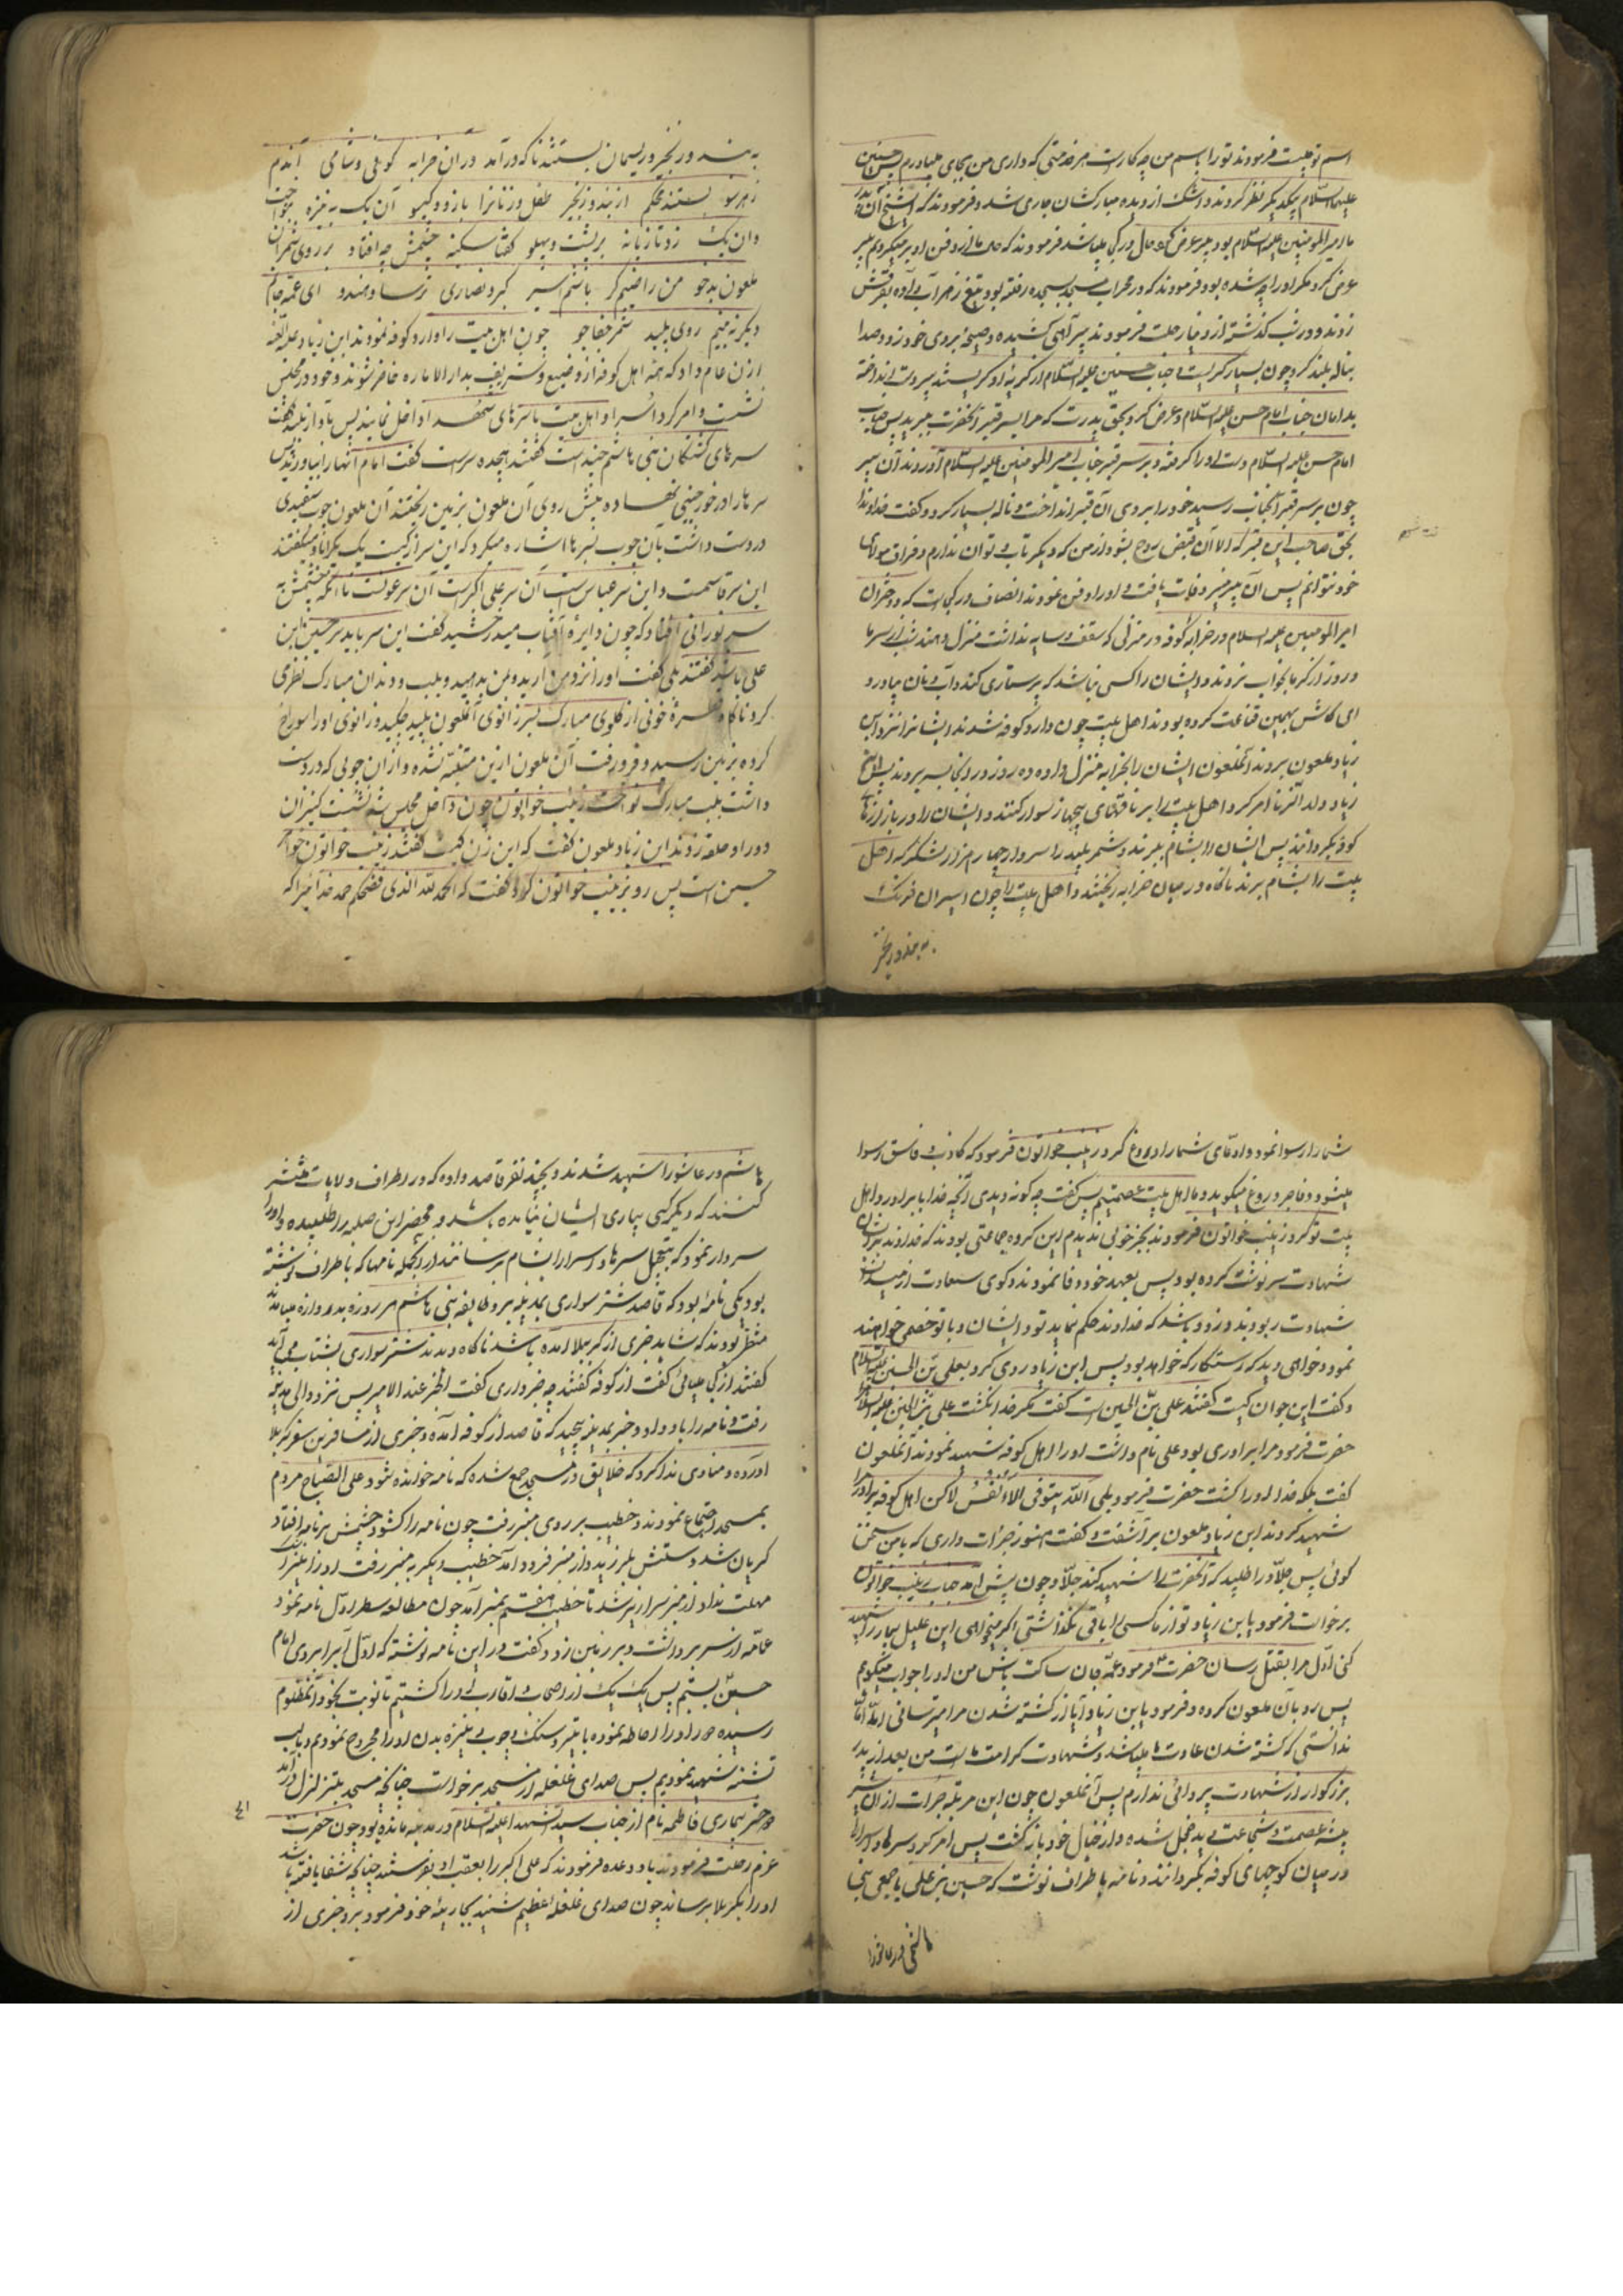 اسم تو چیست فرمودند تو را باسم من چه کار است هر خدمتی که داری من بجای میاورم پس حسنین
علیهما السلام بیکدیکر نظر کردند و اشک از دیده مبارکشان جاری شد و فرمودند که ای شیخ آن پدر
ما امیر المومنین علیه السلام بود پیر عرض کرد حال در کجا میباشد فرمودند که حال ما از دفن او بر میکردیم پیر
عرض کرد مکر او را چه شده بود فرمودند که در محراب مسجد بسجده رفته بود تیغ زهر آب داده بفرقش
زدند و در شب کذشته از دنیا رحلت فرمودند پیر آهی کشیده و صیحهٔ بروی خود زد و صدا
بناله بلند کرد چون بسیار کریست جناب حسنین علیه السلام از کریهٔ او کریستند پیر دست انداخته
بدامان جناب امام حسن علیه السلام و عرض کرد بحق پدرت که مرا بسر قبر آنحضرت ببرید پس جناب
امام حسن علیه السلام دست او را کرفته و بر سر قبر جناب امیر المومنین علیه السلام آوردند آن پیر
چون بر سر قبر آنجناب رسید خود را بروی آن قبر انداخت و ناله بسیار کرد و کفت خداوندا
بحق صاحب این قبر که الا آن قبض روح بشود از من که دیکر تاب و توان ندارم و فراق مولای
خود نتوانم پس آن پیر وفات یافت و او را دفن نمودند انصاف در کجاست که دختران
امیر المومنین علیه السلام در خرابهٔ کوفه در منزلی که سقف و سایه نداشت منزل دهند شب از سرما
و روز از کرما بخواب نروند و ایشان را کسی نباشد که پرستاری کند و آب و نان بیاورد
ای کاش بهمین قناعت کرده بودند اهل بیت چون وارد کوفه شدند و ایشانرا نزد ابن
زیاد ملعون بردند آنملعون ایشان را بخرابه منزل داده ده روز در آنجا بسر بردند پس ابن
زیاد ولد الزنا امر کرد اهل بیت را بر ناقهای بیجهاز سوار کنند و ایشان را در بازارهای
کوفه بکردانند پس ایشان را بشام ببرند و شمر پلید را سردار چهار هزار لشکر کرد که اهل
بیت را بشام برند ناکاه در میان خرابه ریختند و اهل بیت را چون اسیران فرنک
به بند و زنجیر
به بند و زنجیر و ریسمان بستند ناکه در آمد در آن خرابه کوفی و شامی آندم
زهر سو بستند محکم از بند و زنجیر طفل و زنانرا بازو و کیسو آن یک به نیزه
وان یک زد تازیانه بر پشت و پهلو کفتا سکینه چشمش چه افتاد بر روی شمر آن
ملعون بدخو من راضیم کر باشم اسیر کبر و نصاری ترسا و هندو ای عمه جانم
دیکر نه بینم روی پلید شمر جفاجو چون اهل بیت را وارد کوفه نمودند ابن زیاد علیه اللعنه
اذن عام داد که همه اهل کوفه از وضیع و شریف بدار الاماره حاضر شوند و خود در مجلس
نشست و امر کرد اسرا و اهل بیت با سرهای شهدا داخل نمایند پس باواز بلند کفت
سرهای کشتکان بنی هاشم چند است کفتند هجده سر است کفت تمام آنها را بیاورند پس
سرها را در خورجینی نهاده پیش روی آن ملعون بزمین ریختند آن ملعون چوب سفیدی
در دست داشت بآن چوب بسرها اشاره میکرد که این سر از کیست یک یک را نام میکفتند
این سر قاسمست و این سر عباس است آن سر علی اکبر است آن سر عونست تا آنکه چشمش به
سر نورانی افتاد که چون دایرهٔ آفتاب میدرخشید کفت این سر باید سر حسین ابن
علی باشد کفتند بلی کفت او را نزد من آرید و بمن بدهید و بلب و دندان مبارک نظری
کرد ناکاه قطرهٔ خونی از کلوی مبارک بسر زانوی آنملعون پلید چکید و زانوی او را سوراخ
کرده بزمین رسید و فرو رفت آن ملعون از این متنبه نشده و از آن چوبی که در دست
داشت بلب مبارک نواخت زینب خواتون چون داخل مجلس شد نشست کنیزان
دور او حلقه زدند ابن زیاد ملعون کفت که این زن کیست کفتند زینب خواتون خواهر
حسین است پس رو بزینب خواتون کرد کفت که الحمد لله الذی فضحکم حمد خدا را که
شما را رسوا نمود و ادعای شما را دروغ کرد زینب خواتون فرمود که کاذب و فاسق رسوا
میشود و فاجر دروغ میکوید و ما اهل بیت عصمتیم پس کفت چه کونه دیدی آنچه خدا با برادر و اهل
بیت تو کرد زینب خواتون فرمودند بجز خوبی ندیدم این کروه جماعتی بودند که خداوند بر ایشان
شهادت سرنوشت کرده بود پس بعهد خود وفا نمودند و کوی سعادت از میدان
شهادت ربودند و زود باشد که خداوند حکم نماید تو و ایشان و با تو خصمی خواهند
نمود و خواهی دید که رستکار که خواهد بود پس ابن زیاد روی کرد بعلی بن الحسین علیه السلام
و کفت این جوان کیست کفتند علی بن الحسین است کفت مکر خدا نکشت علی بن الحسین علیه السلام را
حضرت فرمود مرا برادری بود علی نام داشت او را اهل کوفه شهید نمودند آنملعون
کفت بلکه خدا او را کشت حضرت فرمود بلی الله یتوفی الانفس لاکن اهل کوفه برادر مرا
شهید کردند ابن زیاد ملعون بر آشفت و کفت هنوز جرات داری که با من سخن
کوئی پس جلاد را طلبید که آنحضرت را شهید کند جلاد چون پیش آمد جناب زینب خواتون
برخواست فرمود یا بن زیاد تو از ما کسی را باقی نکذاشتی اکر میخواهی این علیل بیمار را شهید
کنی اول مرا بقتل رسان حضرت فرمود عمه جان ساکت باش من او را جواب میکویم
پس رو بآن ملعون کرده و فرمود یا بن زیاد آیا از کشته شدن مرا میترسانی
ندانستی که کشته شدن عادت ما میباشد و شهادت کرامت ماست من بعد از پدر
بزرکوار از شهادت پروائی ندارم پس آنملعون چون این مرتبه جرات از آن شیر
بیشهٔ عصمت و شجاعت دید خجل شده و از خیال خود باز کشت پس امر کرد سرها و اسرا را
در میان کوچهای کوفه بکردانند و نامه باطراف نوشت که حسین بن علی با جمعی بنی
هاشم در عاشورا
هاشم در عاشورا شهید شدند و بچند نفر قاصد داده که در اطراف و ولایات منتشر
کنند که دیکر کسی بیاری ایشان نیامده باشد و محضر ابن صله را طلبیده و او را
سردار نمود که بتعجیل سرها و اسرا را بشام برسانند از جمله نامها که باطراف نوشته
بود یکی نامه بود که قاصد شتر سواری بمدینه برد طایفه بنی هاشم هر روزه بدروازه میامدند
منتظر بودند که شاید خبری از کربلا آمده باشد ناکاه دیدند شتر سواری بشتاب می آید
کفتند از کجا میائی کفت از کوفه کفتند چه خبر داری کفت الخبر عند الامیر پس نزد والی مدینه
رفت و نامه را باو داد و خبر بمدینه پیچید که قاصد از کوفه آمده و خبری از مسافرین سفر کربلا
آورده و منادی ندا کرد که خلایق در مسجد جمع شده که نامه خوانده شود علی الصباح مردم
بمسجد اجتماع نمودند و خطیب بر روی منبر رفت چون نامه را کشود چشمش بر نامه افتاد
کریان شد و دستش بلرزید و از منبر فرود آمد خطیب دیکر به منبر رفت او را نیز
مهلت نداد از منبر سرازیر شد تا خطیب هفتم بمنبر آمد چون مطالعه سطر اول نامه نمود
عمامه از سر برداشت و بر زمین زد و کفت در این نامه نوشته که اول آب را بروی امام
حسین بستیم پس یک یک از اصحاب و اقارب او را کشتیم تا نوبت بخود آنمظلوم
رسیده دور او را احاطه نموده با تیر و سنک و چوب و نیزه بدن او را مجروح نمودیم و بالب
تشنه شهید نمودیم پس صدای غلغله از مسجد برخواست چنانچه مسجد بتزلزل در آمد
دختر بیماری فاطمه نام از جناب سید الشهدا علیه السلام در مدینه مانده بود چون حضرت
عزم رحلت فرمودند باو وعده فرمودند که علی اکبر را بعقب او بفرستند چنانکه شفا یافته باشد
او را بکربلا برساند چون صدای غلغله عظیم شنید بجاریهٔ خود فرمود برو خبری از
٤١